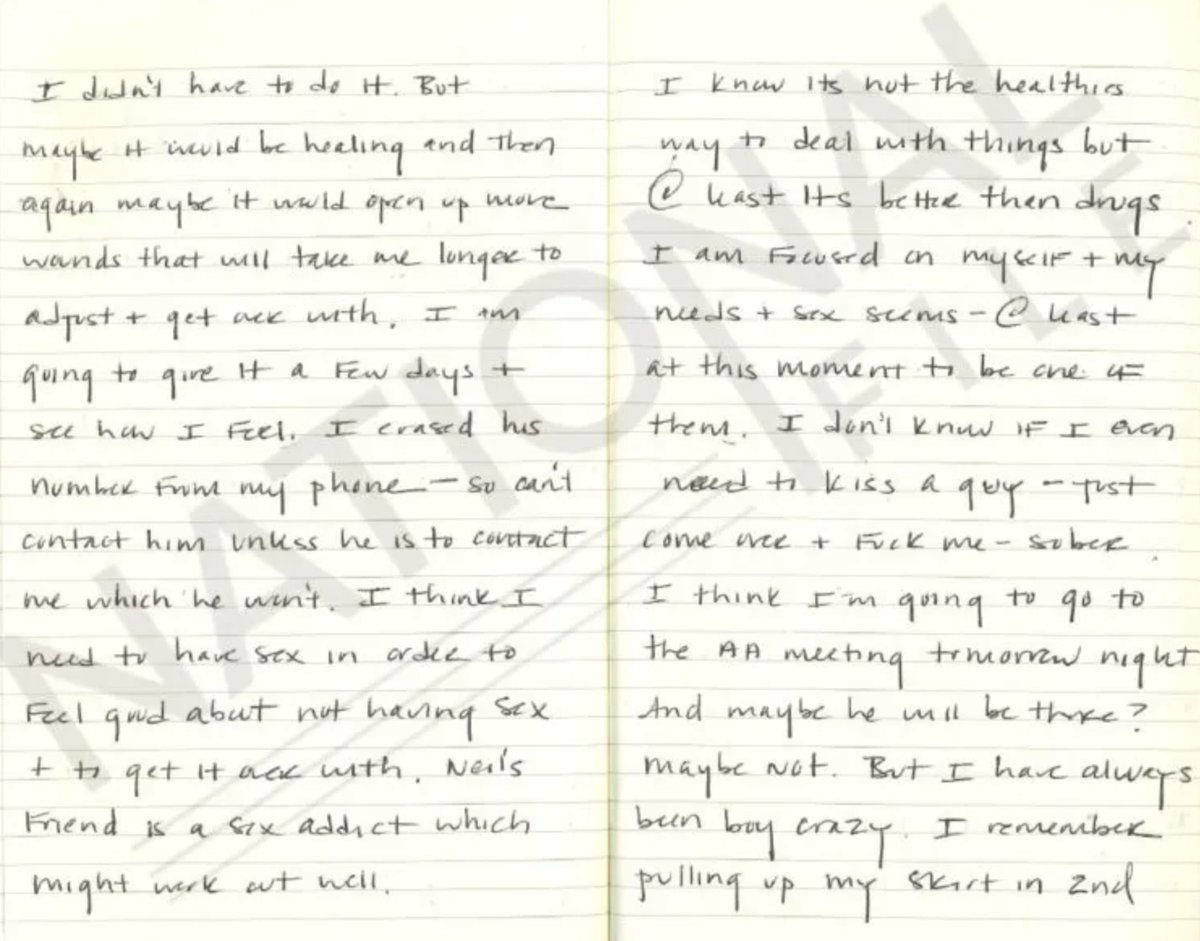 I didn't have to do it. But
maybe it would be healing and then
again maybe it would open up more
wounds that will take me longer to
adjust + get over with. I am
going to give it a few days +
see how I feel. I erased his
number from my phone - so can't
contact him unless he is to contact
me which he won't. I think I
need to have sex in order to
feel good about not having sex
+ to get it over with. Neil's
friend is a sex addict which
might work out well.
I know its not the healthies
way to deal with things but
@ least its better then drugs
I am focused on myself + my
needs + sex seems - @ least
at this moment to be one of
them. I don't know if I even
need to kiss a guy - just
come over + fuck me - sober.
I think I'm going to go to
the AA meeting tomorrow night
And maybe he will be there?
maybe not. But I have always
been boy crazy. I remember
pulling up my skirt in 2nd
NATIONAL
FILE